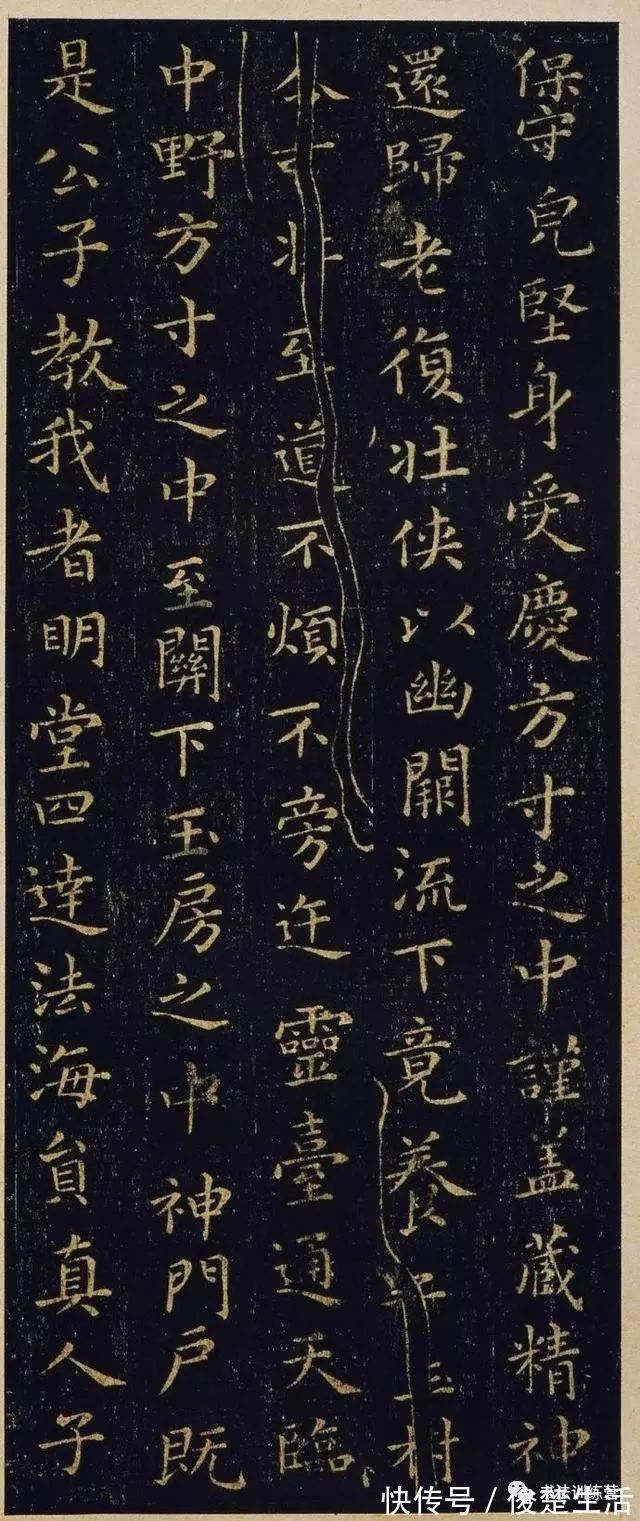 保守皃堅身受慶方寸之中謹盖藏精神
還歸老復壯侠以幽闕流下竟養
至道不煩不旁迕靈臺通天臨
中野方寸之中至關下玉房之中神門戶既
是公子教我者明堂四達法海員真人子
书法训练营
快传号 / 楚生活